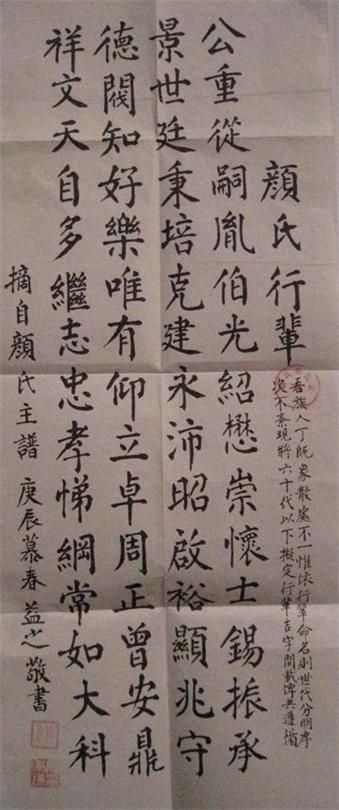 顏氏行輩
吾族人丁既眾散處不一惟依行輩命名則世代分明序
次不紊現將六十代以下擬定行輩吉字開載俾共遵循
公重從嗣胤伯光紹懋崇懷士錫振承
景世廷秉培克建永沛昭啟裕顯兆守
德閥知好樂唯有仰立卓周正曾安鼎
祥文天自多繼志忠孝悌綱常如大科
摘自顏氏主譜 庚辰慕春益之敬書